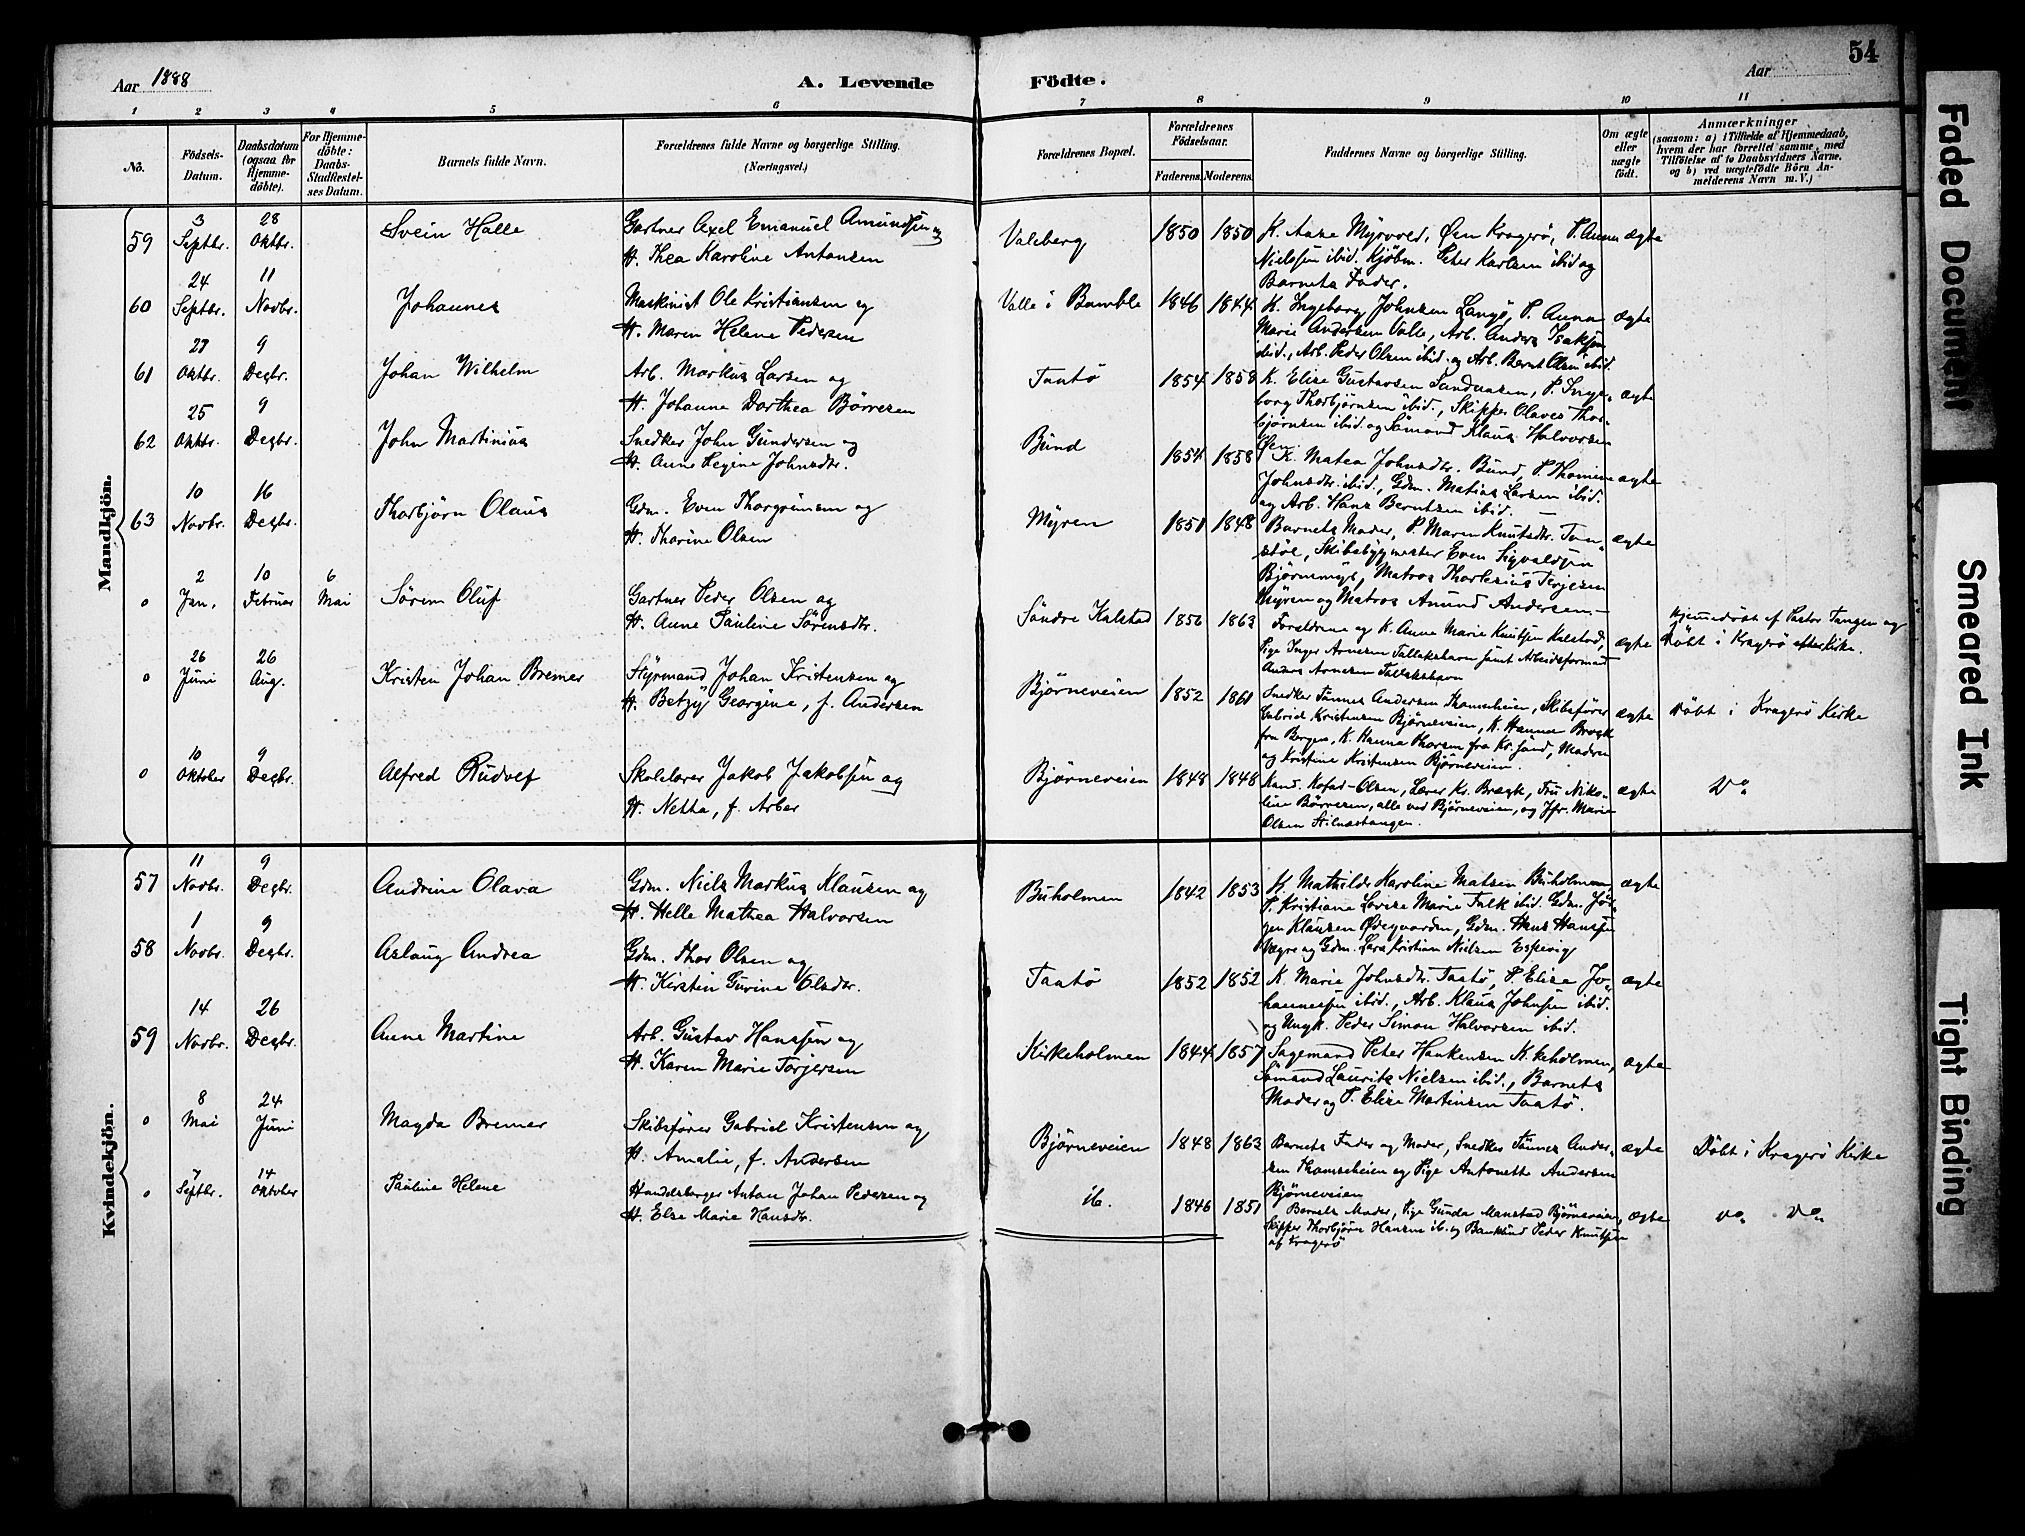 54
Aar 1888
A. Levende
Födte.
Aar
1 2 3 4 5 6 7 8 9 10 11
No.
Födsels-Datum.
Daabsdatum (ogsaa for Hjemme-döbte).
For Hjemme-döbte: Daabs-Stadfæstel-ses Datum.
Barnets fulde Navn.
Forældrenes fulde Navne og borgerlige Stilling. (Næringsvei.)
Forældrenes Bopæl.
Forældrenes Födselsaar.
Faderens. Moderens.
Faddernes Navne og borgerlige Stilling.
Om ægte eller uægte födt.
Anmærkninger
(saasom: a) i Tilfælde af Hjemmedaab, hvem der har forrettet samme, med Tilföielse af to Daabsvidners Navne, og b) ved uægtefödte Börn An-melderens Navn m. V.)
Mandkjön.
59 3 Septbr. 28 Oktbr. Svein Halle
Gartner Axel Emanuel Amundsen og
H. Thea Karoline Antonsen
Valeberg 1850 1850
K. Aase Myrvold, Øen Kragerö, P. Anna
Nielssen ibid. Kjöbm. Peter Karlsen ibid og
Barnets Fader.
ægte
60 24 Septbr. 11 Novbr. Johannes
Maskinist Ole Kristiansen og
H. Maren Helene Pedersen
Valle i Bamble 1846 1844
K. Ingeborg Johnsen Langö, P. Anna
Marie Andersen Valle, Arb. Anders Isaksen
ibid., Arb. Peder Olsen ibid. og Arb. Bernt Olsen ibid.
ægte
61 27 Oktbr. 9 Decbr. Johan Wilhelm
Arb. Markus Larsen og
H. Johanne Dorthea Börresen
Taatö 1854 1858
K. Elise Gustavsen Sandaasen, P. Inge-
borg Thorbjörnsen ibid., Skipper Olaves Thor-
björnsen ibid. og Sömand Klaus Halvorsen
Øen.
ægte
62 25 Oktbr. 9 Decbr. John Martinius
Snedker John Gundersen og
H. Anne Regine Johnsdtr.
Bund 1854 1858
K. Matea Johnsdtr. Bund, P. Thomine
Johnsdtr. ibid., Gdm. Matias Larsen ibid.
og Arb. Hans Berntsen ibid.
ægte
63 10 Novbr. 16 Decbr. Thorbjörn Olaus
Gdm. Even Thorgrimsen og
H. Thorine Olsen
Myren 1851 1848
Barnets Moder, P. Maren Knutsdtr. Tven-
stöl, Skibsbygmester Even Sigvaldsen
Björnemyr, Matros Thorlesius Terjesen
Myren og Matros Amund Andersen.
ægte
0 2 Jan. 10 Februar 6 Mai Sören Oluf
Gartner Peder Olsen og
H. Anne Pauline Sörensdtr.
Söndre Kalstad 1856 1863
Forældrene og K. Anne Marie Knutsen Kalstad,
Pige Inger Arnesen Tallakshavn samt Arbeidsformand
Anders Arnesen Tallakshavn
ægte
Hjemmedöbt af Pastor Tangen og
Döbt i Kragerö Kirke.
0 26 Juni 26 Aug. Kristen Johan Bremer
Styrmand Johan Kristensen og
H. Betzy Georgine, f. Andersen
Björneveien 1852 1861
Snedker Tönnes Andersen Thomesheien, Skibsförer
Gabriel Kristensen Björneveien, K. Hanna
fra Bergen, K. Hanna Thorsen fra Kr.sand, Moderen
og Kristine Kristensen Björneveien
ægte
Döbt i Kragerö Kirke
0 10 Oktober 9 Decbr. Alfred Rudvef
Skolelærer Jakob Jakobsen og
H. Netha, f. Arber
Björneveien 1848 1848
Kand. Kofod-Olsen, Lærer Kr. Brægt, Fru Niko-
line Börresen, alle ved Björneveien, og Jfr. Marie
Olsen Stilnæstangen.
ægte
Do
Kvindekjön.
57 11 Novbr. 9 Decbr. Andrine Olava
Gdm. Niels Markus Klausen og
H. Helle Mathea Halvorsen
Buholmen 1842 1853
K. Mathilde Karoline Matsen Buholmen
P. Kristiane Lovise Marie Falk ibid. Gdm. Jör-
gen Klausen Ødegaarden, Gdm. Hans Hansen
og Gdm. Lars Kristian Nielsen Espevig
ægte
58 1 Novbr. 9 Decbr. Aslaug Andrea
Gdm. Thor Olsen og
H. Kirstin Gurine Olsdtr.
Taatö 1852 1852
K. Marie Johnsdtr. Taatö, P. Elise Jo-
hannessen ibid., Arb. Klaus Johnsen ibid.
og Ungk. Peder Simon Halvorsen ibid.
ægte
59 14 Novbr. 26 Decbr. Anne Martine
Arb. Gustav Hanssen og
H. Karen Marie Torjersen
Kirkeholmen 1844 1857
Sagemand Peter Haakensen Kirkeholmen,
Sömand Laurits Nielsen ibid., Barnets
Moder og P. Elise Martinsen Taatö.
ægte
0 8 Mai 24 Juni Magda Bremer
Skibsförer Gabriel Kristensen og
H. Amalie, f. Andersen
Björneveien 1848 1863
Barnets Fader og Moder, Snedker Tönnes Ander-
sen Thomesheien og Pige Antonette Andersen
Björneveien
ægte
Döbt i Kragerö Kirke
0 7 Septbr. 14 Oktober Pauline Helene
Handelsborger Anton Johan Pedersen og
H. Else Marie Hansdtr.
ib. 1846 1851
Barnets Moder, Pige Gunda Monstad Björneveien,
Skipper Thorbjörn Hansen ib. og Bankbud Peder Knutsen
af Kragerö
ægte
Do Do
Faded Document
Smeared Ink
Tight Binding